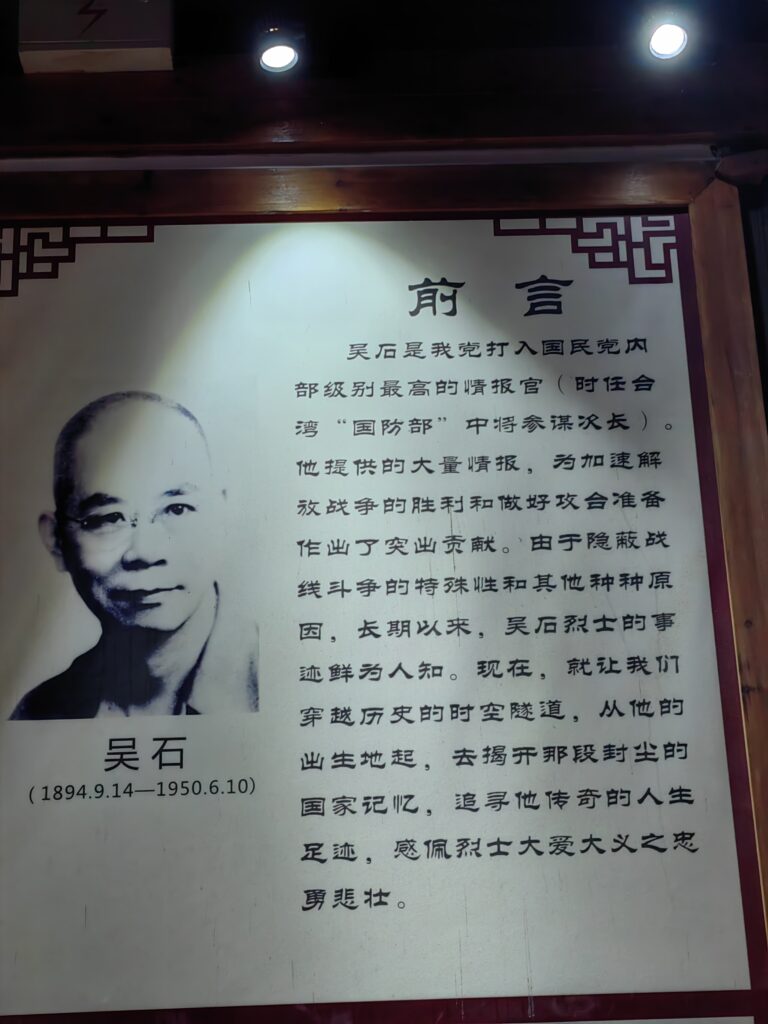 前言
吴石是我党打入国民党内
部级别最高的情报官（时任台
湾“国防部”中将参谋次长）。
他提供的大量情报，为加速解
放战争的胜利和做好攻台准备
作出了突出贡献。由于隐蔽战
线斗争的特殊性和其他种种原
因，长期以来，吴石烈士的事
迹鲜为人知。现在，就让我们
穿越历史的时空隧道，从他的
出生地起，去揭开那段封尘的
国家记忆，追寻他传奇的人生
足迹，感佩烈士大爱大义之忠
勇悲壮。
吴石
（1894.9.14—1950.6.10）